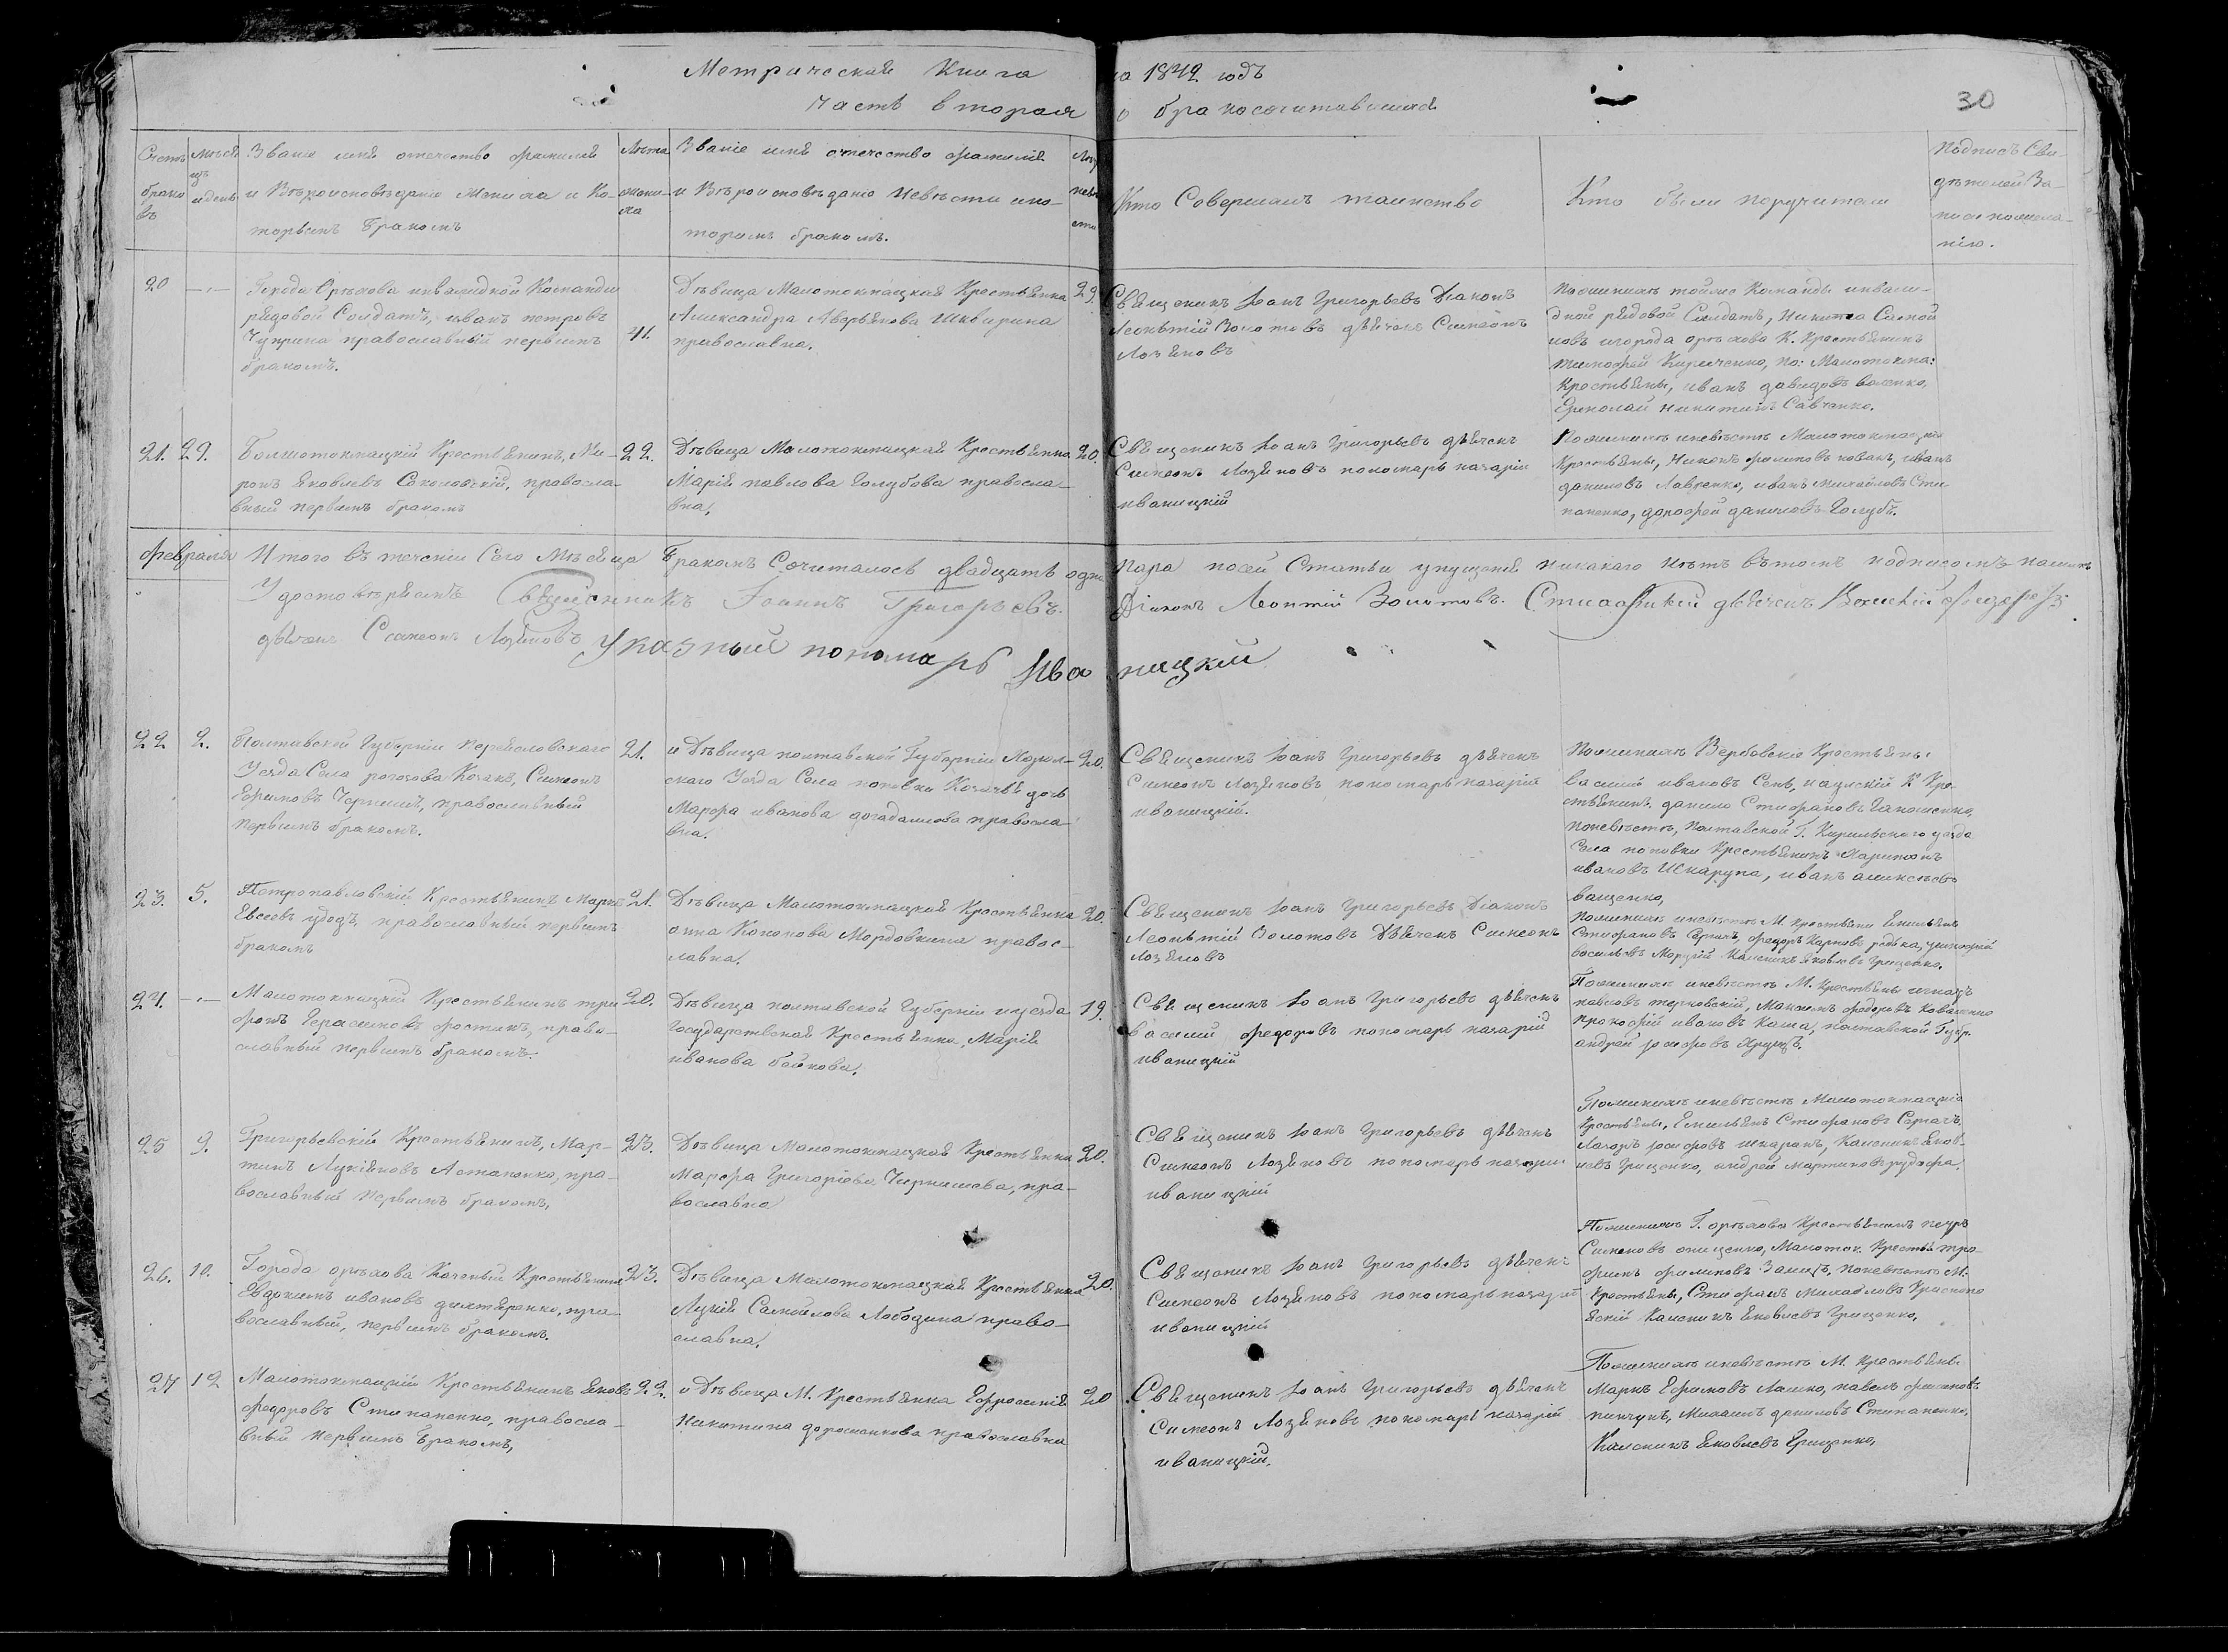 Метрическая Книга на 1842 годъ
Часть вторая о бракосочитавшихся
30
Счетъ браковъ
Мѣсяцъ и день
Званіе имя отечество фамилія
и Вѣроисповѣданіе Жениха и Ко-
торымъ бракомъ
Лѣта жени-
ха
Званіе имя отечество фамилія
и Вѣроисповѣданіе Невѣсты и ко-
торымъ бракомъ.
Кто Совершалъ таинство
Кто были поручители
Подпись Сви-
дѣтелей За-
писи по жела-
нію.
20
Города Орѣхова инвалидной Команды
рядовой Солдатъ, иванъ петровъ
Чуприна православный первымъ
бракомъ.
41.
Дѣвица Малотокмацкая Крестьянка
Александра Аверьянова Шквирина
православна.
29.
Священикъ Іоанъ Григорьевъ Діаконъ
Леонтій Золотовъ дьячекъ Симеонъ
Лозяновъ
По женихѣ тойже Команды инвали-
дной рядовой Солдатъ, Никита Самой
ловъ игорода орѣхова К. Крестьянинъ
тимофей Кириченко, по: Малотокма:
Крестьяны, иванъ давидовъ
Ермолай никитинъ Савченко.
21. 29.
Болшотокмацкій Крестьянинъ, Ми-
ронъ Яковлевъ Соколовскій, правосла-
вный первымъ бракомъ
22.
Дѣвица Малотокмацкая Крестьянка
Марія павлова Голубова правосла-
вна.
20.
Священикъ Іоанъ Григорьевъ дьячекъ
Симеонъ Лозяновъ пономарь назарій
иваницкій
По женихѣ иневѣстѣ Малотокмацкія
Крестьяны, Никонъ филиповъ ковалъ, иванъ
даниловъ Лавренко, иванъ михайловъ Сте
паненко, дорофей даниловъ Голубъ.
февраля
Итого въ теченіи Сего Мѣсяца Бракомъ Сочиталось двадцать одна пара по сей Статьи упущеній никакого нѣтъ вътомъ подписомъ нашимъ
Удостовѣряемъ Священникъ Іоаннъ Григорьевъ. Діаконъ Леонтій Золотовъ. Стихарный дьячекъ Василій Федоровъ
дьячекъ Симеонъ Лозяновъ Указный пономарь Иваницкий
22 2.
Полтавской Губерніи переяславского
Уезда Села рогозова Козакъ, Симеонъ
Ефимовъ Черниш, православный
первымъ бракомъ.
21.
и Дѣвица полтавской Губерніи Хорол-
скаго Уезда Села поповки Козачья дочь
Марфа иванова догадаилова правосла
вна.
20.
Священикъ Іоанъ Григорьевъ дьячекъ
Симеонъ Лозяновъ пономарь назарій
иваницкій.
По женихѣ Вербовскіе Крестьяны
василій ивановъ К Кре-
стьянинъ данило Стефановъ Гапоненко,
поневѣстѣ, Полтавской Г. уезда
Села поповки Крестьянинъ Харитонъ
ивановъ Шкарупа, иванъ алексѣевъ
ващенко,
23. 5.
Петропавловскій Крестьянинъ Марко
Евсеевъ удодъ, православный первымъ
бракомъ
21.
Дѣвица Малотокмацкая Крестьянка
анна Кононова Мордовкина правос-
лавна.
20.
Священикъ Іоанъ Григорьевъ Діаконъ
Леонтій Золотовъ Дьячекъ Симеонъ
Лозяновъ
По женихѣ иневѣстѣ М. Крестьяни Емельянъ
Стефановъ Сергачъ, федоръ Карповъ редька,
васильевъ Калсникъ Яковлевъ Грищенко.
24.
Малотокмацкій Крестьянинъ три
фонъ Герасимовъ фостикъ, право-
славный первымъ бракомъ.
20.
Дѣвица полтавской Губерніи иуезда
Государственая Крестьянка, Марія
иванова байкова.
19.
Священикъ Іоанъ Григорьевъ дьячекъ
василій федоровъ пономарь назарій
иваницкій
По женихѣ иневѣстѣ М. Крестьяны игнатъ
павловъ терновскій, Максимъ федоровъ Коваленко
прокофій ивановъ Каша, полтавской Губер.
андрей іосифовъ
25 9.
Григорьевскій Крестьянинъ, Мар-
тинъ Лукіяновъ Астапенко, пра-
вославный первымъ бракомъ,
23.
Дѣвица Малотокмацкая Крестьянка
Марфа Григоріева Чернишева, пра-
вославна
20.
Священикъ Іоанъ Григорьевъ дьячекъ
Симеонъ Лозяновъ пономарь назарій
иваницкій
По женихѣ иневѣстѣ Малотокмацкіа
Крестьяны, Емельянъ Стефановъ Сергачъ,
Лазарь іосифовъ Калсникъ Яков-
левъ Грищенко, андрей мартиновъ
26. 10.
Города орѣхова Казеный Крестьянинъ
Евдокимъ ивановъ дихтяренко, пра-
вославный, первымъ бракомъ.
23.
Дѣвица Малотокмацкая Крестьянка
Лукія Самойлова Лободина право-
славна.
20.
Священикъ Іоанъ Григорьевъ дьячекъ
Симеонъ Лозяновъ пономарь назарій
иваницкій
По женихѣ Г. орѣхова Крестьянинъ петръ
Симоновъ онищенко, Малоток. Крестья тро-
фимъ филиповъ Заицъ, поневѣстѣ М.
Крестьяны, Стефанъ михайловъ
Калсникъ Яковлевъ Грищенко,
27 12
Малотокмацкій Крестьянинъ Яковъ
федоровъ Степаненко, правосла-
вный первымъ бракомъ,
22.
и Дѣвица М. Крестьянка Ефросинія
Никитина дорошенкова православна
20
Священикъ Іоанъ Григорьевъ дьячекъ
Симеонъ Лозяновъ пономарь назарій
иваницкій.
По женихѣ иневѣстѣ М. Крестьяны
Маркъ Ефимовъ Ляшко, павелъ филиповъ
пинчукъ, Михаилъ даниловъ Степаненко,
Калсникъ Яковлевъ Грищенко,